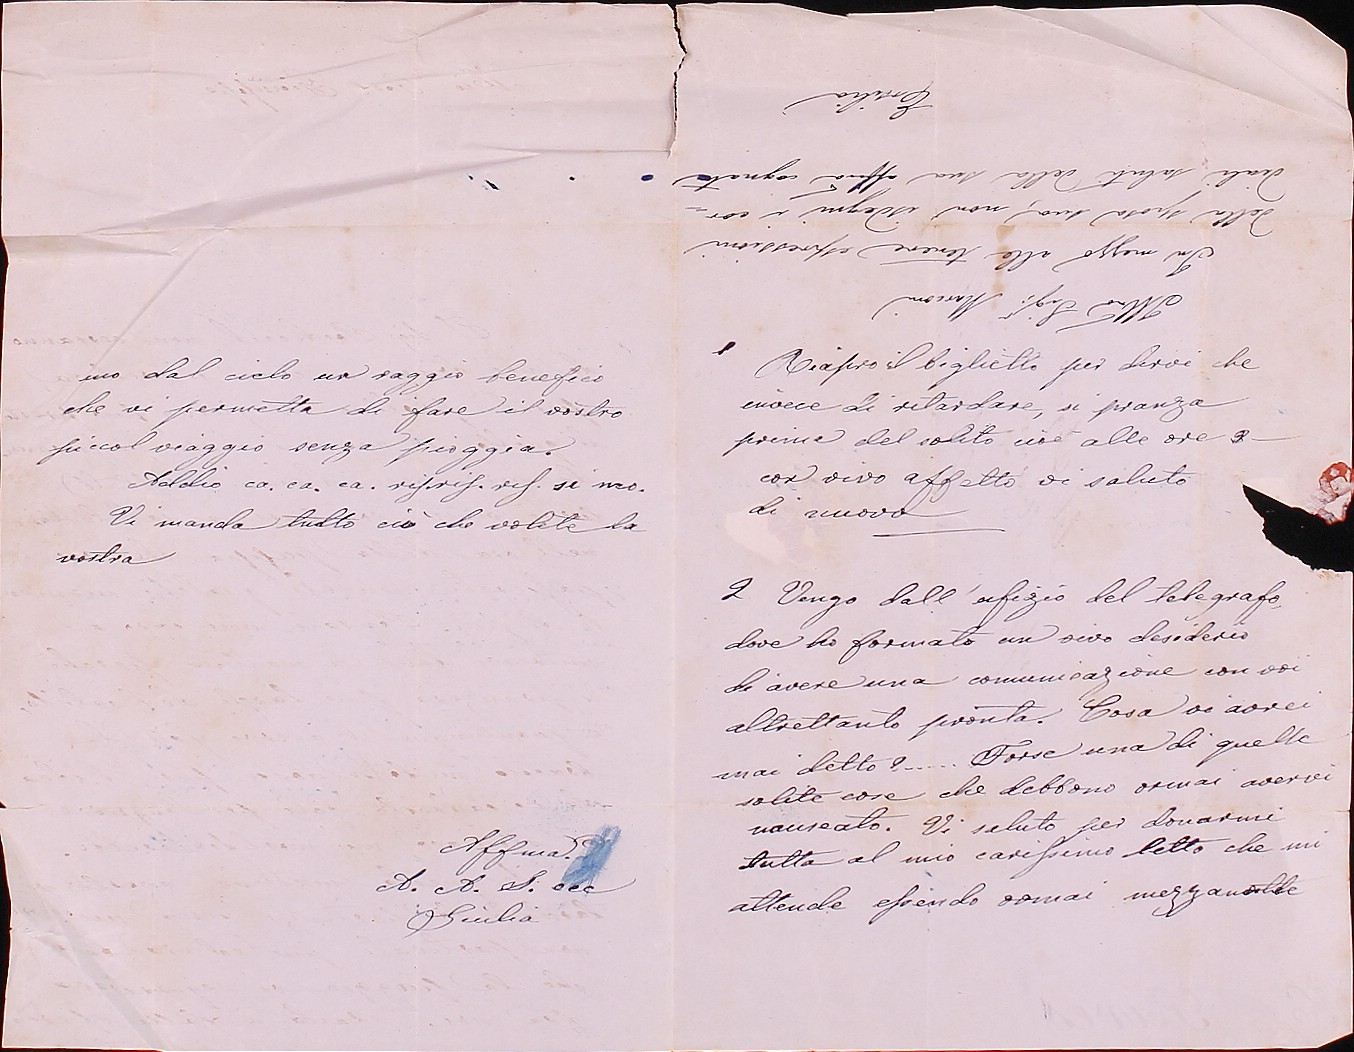 mo dal cielo un raggio benefico
che vi permetta di fare il vostro
piccol viaggio senza pioggia.
Addio ca. ca. ca. ris. ris. ris. si mo.
Vi manda tutto ciò che volete la
vostra
Affma.
A. A. S. ecc
Giulia
Illmo Sigr. Marconi
In mezzo alle tenere espressioni
della sposa sua, non isdegni i cor=
diali saluti della sua affma cognata
Ersilia
1 Riapro il biglietto per dirvi che
invece di ritardare, si pranza
prima del solito cioè alle ore 2 —
con vivo affetto vi saluto
di nuovo
2 Vengo dall'ufizio del telegrafo,
dove ho formato un vivo desiderio
di avere una comunicazione con voi
altrettanto pronta. Cosa vi avrei
mai detto?...... Forse una di quelle
solite cose che debbono ormai avervi
nauseato. Vi saluto per donarmi
tutta al mio carissimo letto che mi
attende essendo ormai mezzanotte